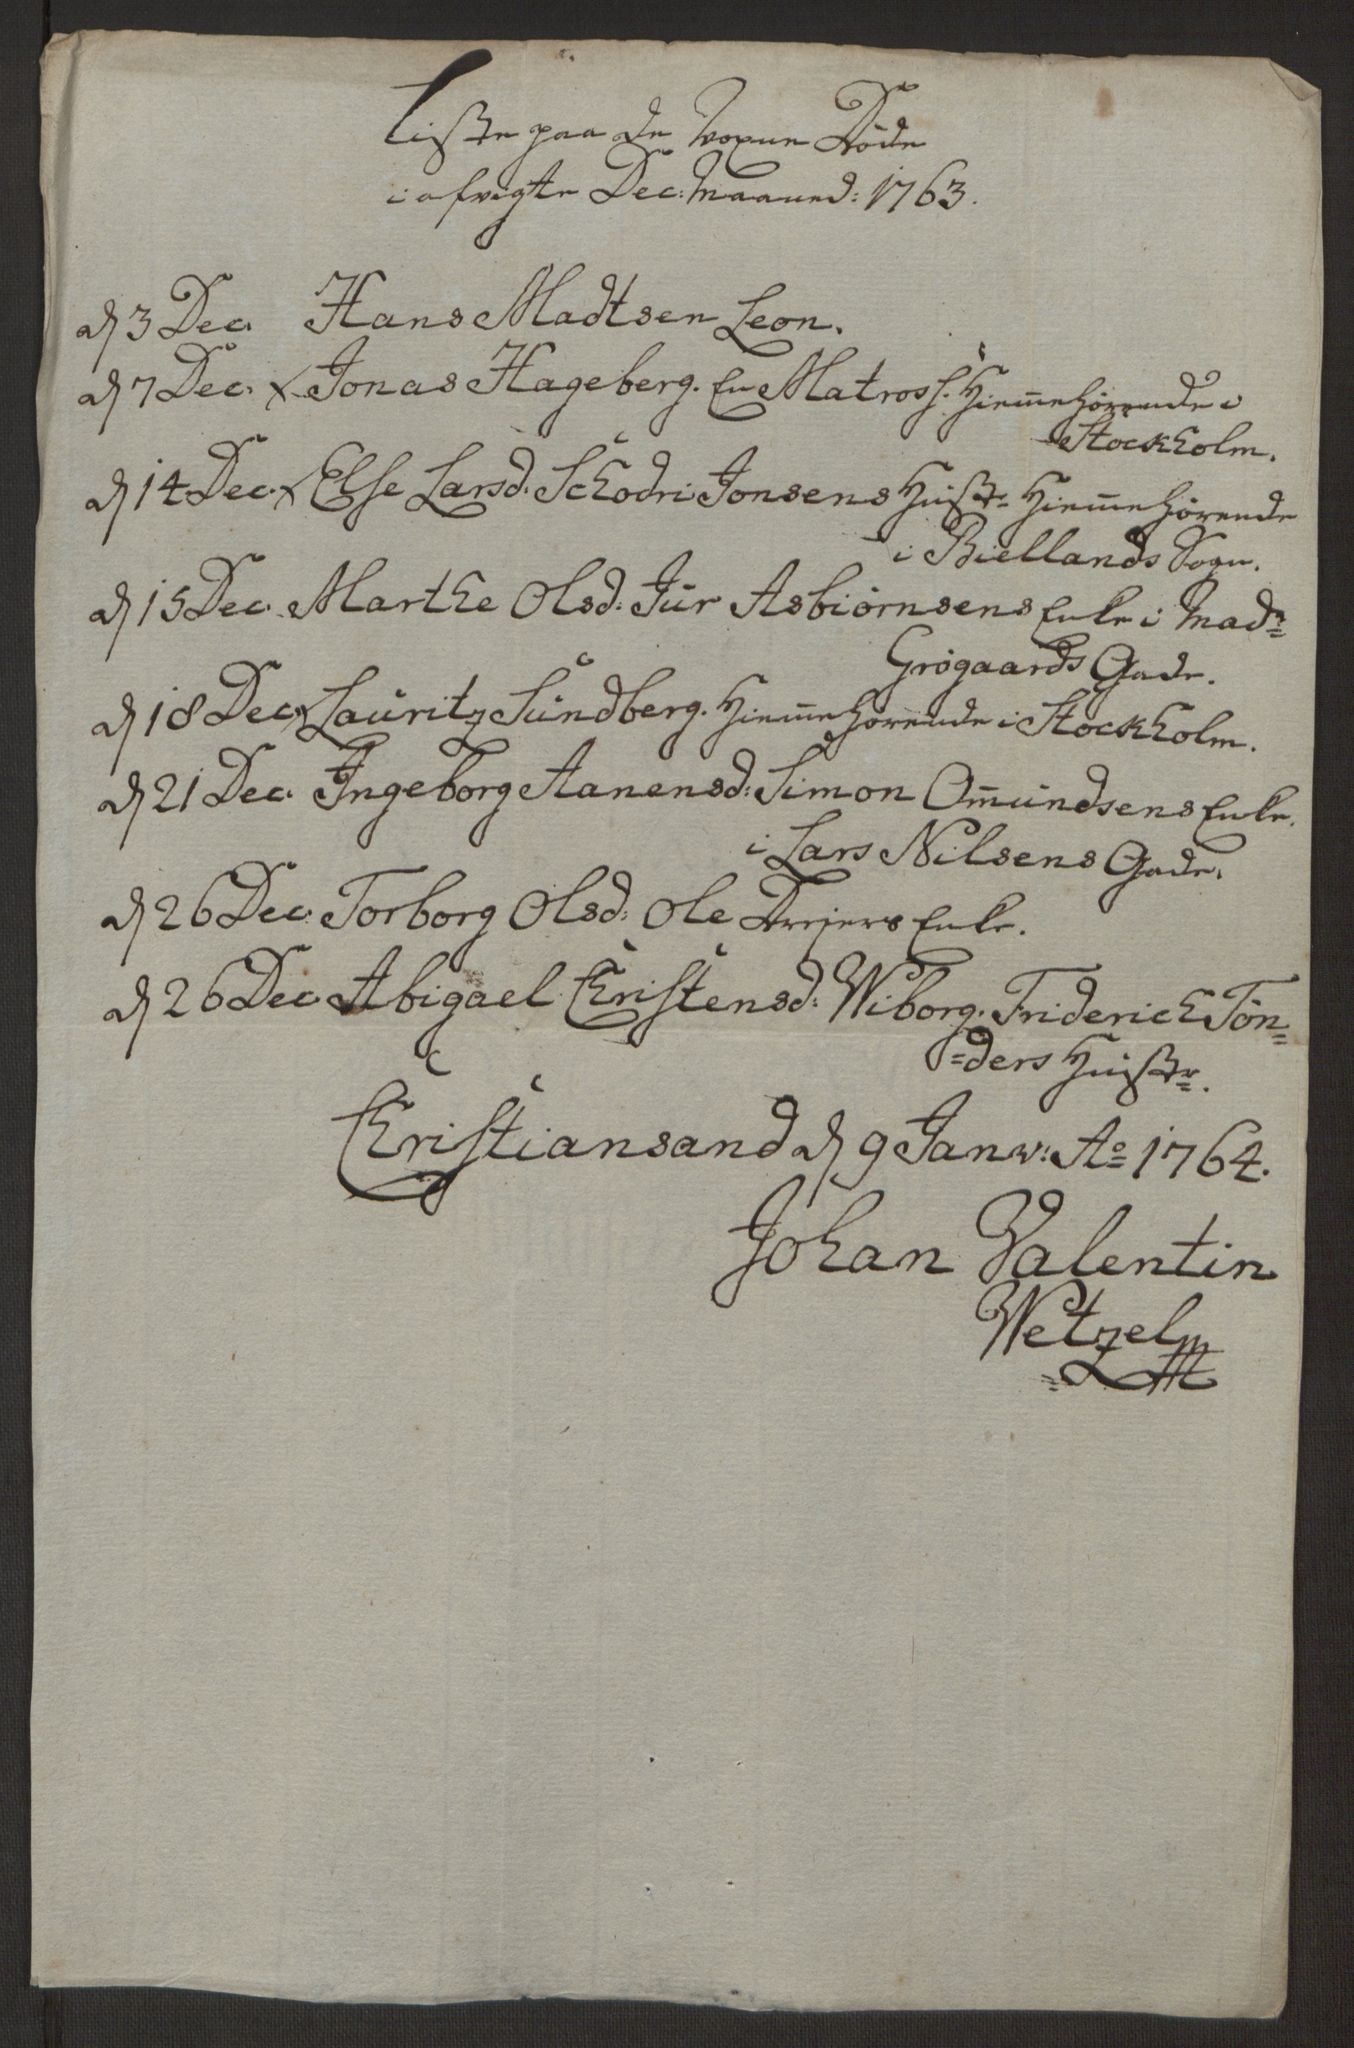 Liste paa de Voxne Døde
i afvigte Dec: Maaned: 1763.
d 3 Dec. Hans Madtsen Leon.
d 7 Dec. x Jonas Hageberg. En Matros h. Hiem̅ehørende i
Stockholm.
d 14 Dec. x Else Larsd: Schodri Jonsens Hustr= Hiem̅ehørende
i Biellands Sogn.
d 15 Dec. Marthe Olsd: Jür Asbiörnsens Enke i Mad=
Grögaards Gade.
d 18 Dec. x Lauritz Sundberg. Hiem̅ehørende i Stockholm.
d 21 Dec. Ingeborg Aanensd: Simon Om̅undsens Enke.
i Lars Nilsens Gade.
d 26 Dec. Torborg Olsd: Ole Dreiers Enke.
d 26 Dec. Abigael Christensd: Wiborg. Friderich Tön=
=ders Hustr=.
Christiansand d 9 Janv: Ao 1764.
Johan Valentin
Wetzel